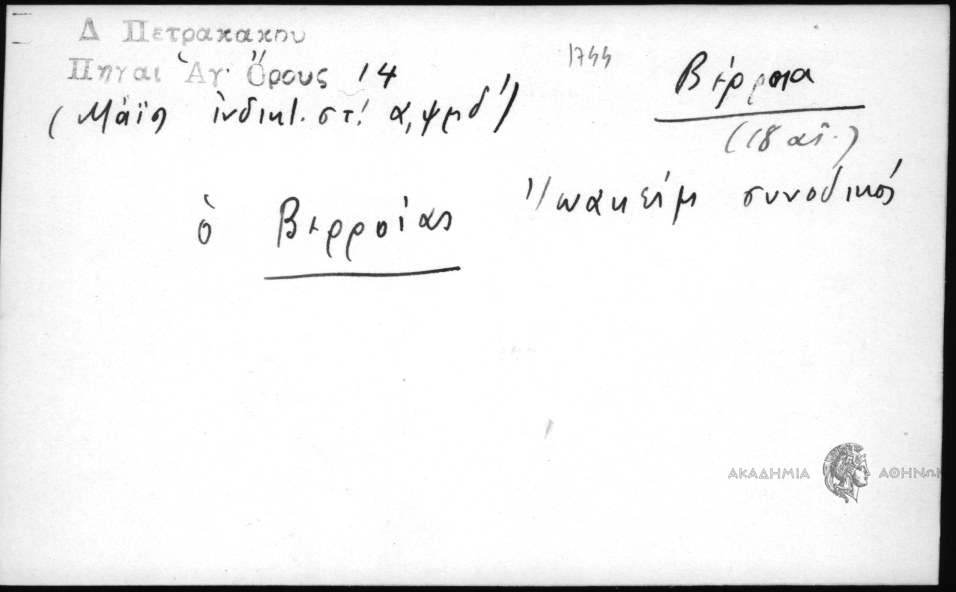 Δ Πετρακακου
Πηγαι Ἁγ. Ὄρους 14
1744
Βέρροια
(Μάϊῳ ἰνδικτ. στ! α,ψμδ')
(18 αἰ.)
ὁ Βερροίας Ἰωακείμ συνοδικός
ΑΚΑΔΗΜΙΑ ΑΘΗΝΩΝ